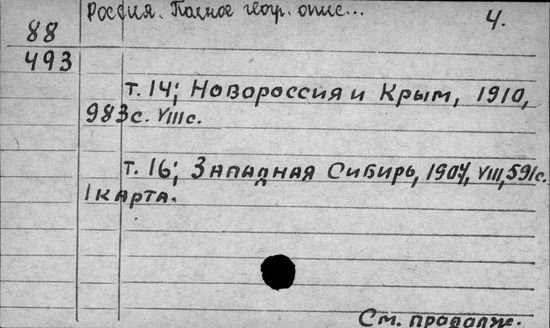 Россия. Полное геогр. опис... 4.
88
493
т. 14; Новороссия и Крым, 1910,
983с. VIIIс.
т. 16; Западная Сибирь, 1907, VIII, 591с.
1 карта.
См. продолж.